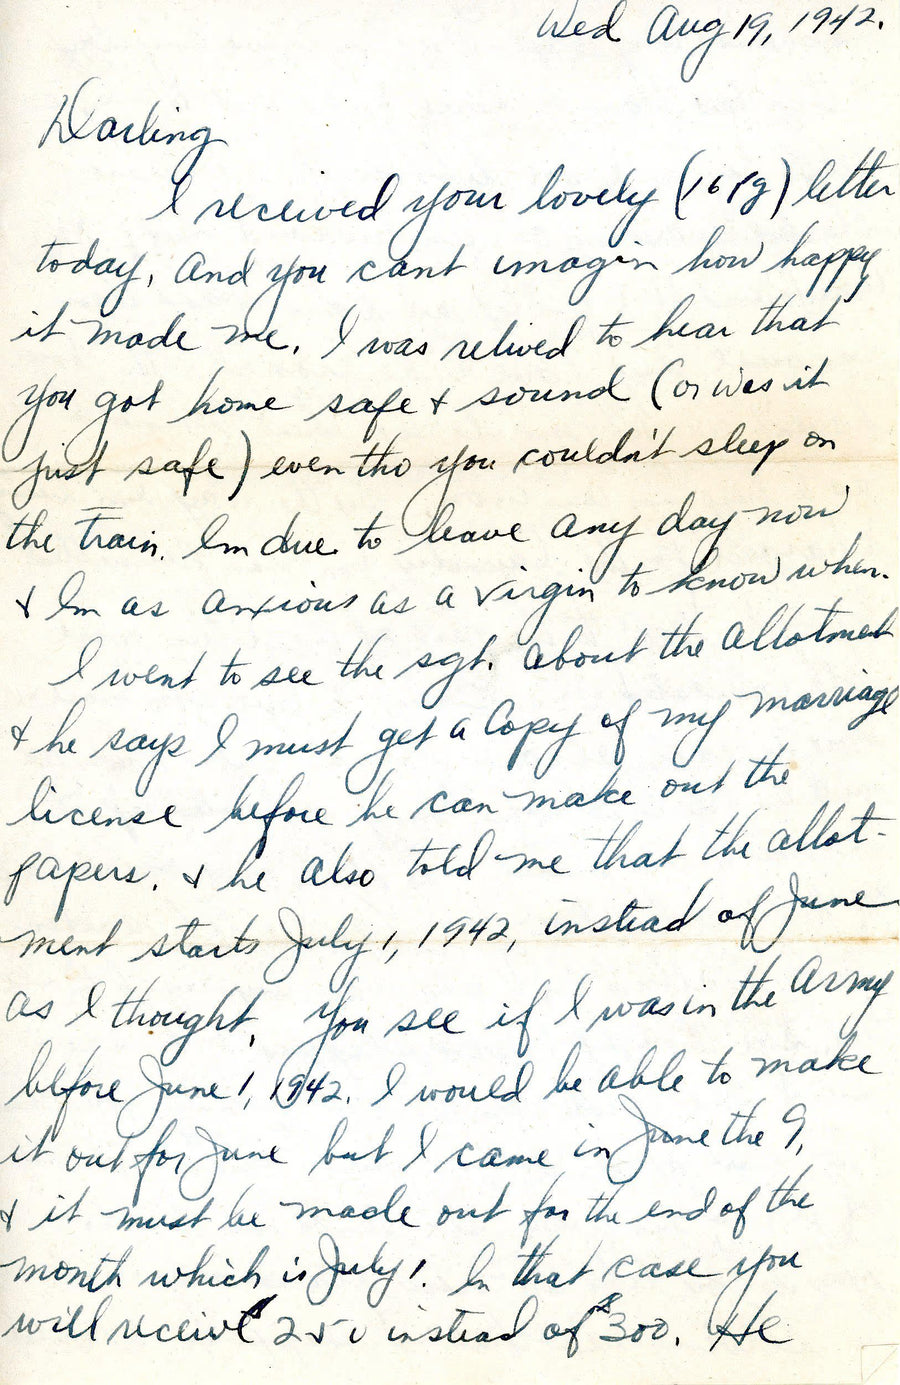 Wed Aug 19, 1942.
Darling
I received your lovely (16 pg) letter
today, and you cant imagin how happy
it made me. I was relived to hear that
you got home safe & sound (or was it
just safe) even tho you couldn't sleep on
the Train. Im due to leave any day now
& Im as anxious as a virgin to know when.
I went to see the sgt. about the allotment
& he says I must get a Copy of my marriage
license before he can make out the
papers. & he also told me that the allot-
ment starts July 1, 1942, instead of June
as I thought. You see if I was in the Army
before June 1, 1942. I would be able to make
it out for June but I came in June the 9,
& it must be made out for the end of the
month which is July 1. In that case you
will receive $250 instead of $300. He